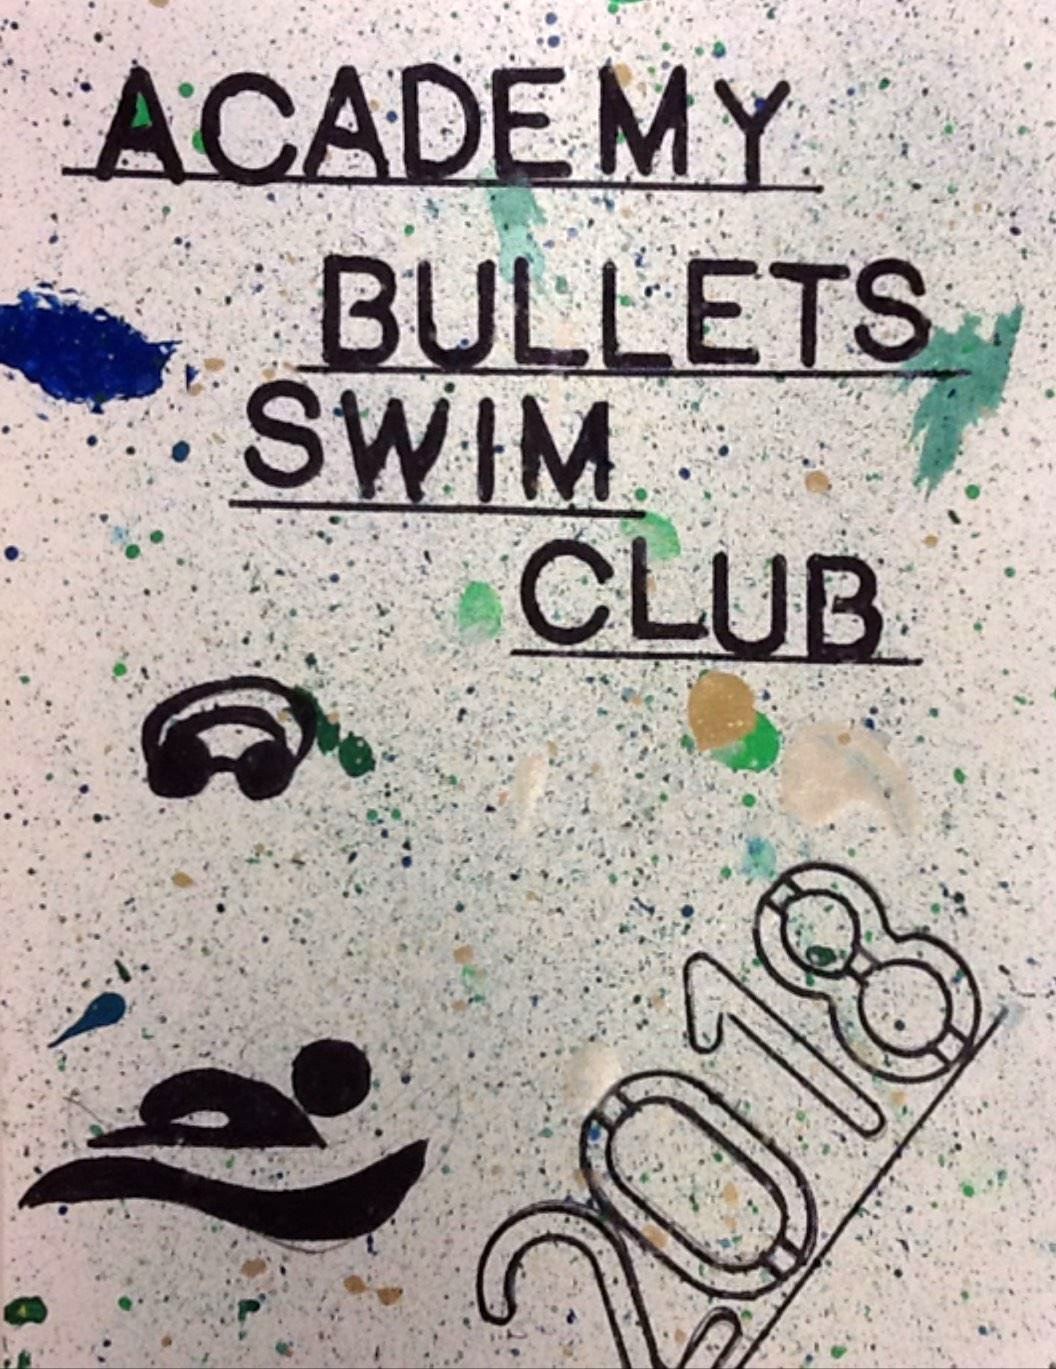 ACADEMY
BULLETS
SWIM
CLUB
2018